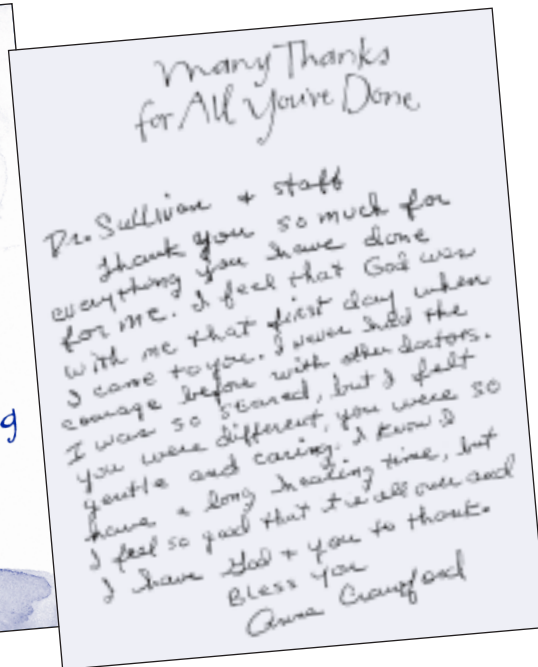 Many Thanks
for All You've Done
Dr. Sullivan + staff
Thank you so much for
everything you have done
for me. I feel that God was
with me that first day when
I came to you. I never had the
courage before with other doctors.
I was so scared, but I felt
you were different, you were so
gentle and caring. I know I
have a long healing time, but
I feel so good that it is all over and
I have God + you to thank.
Bless you
Anna Crawford
g